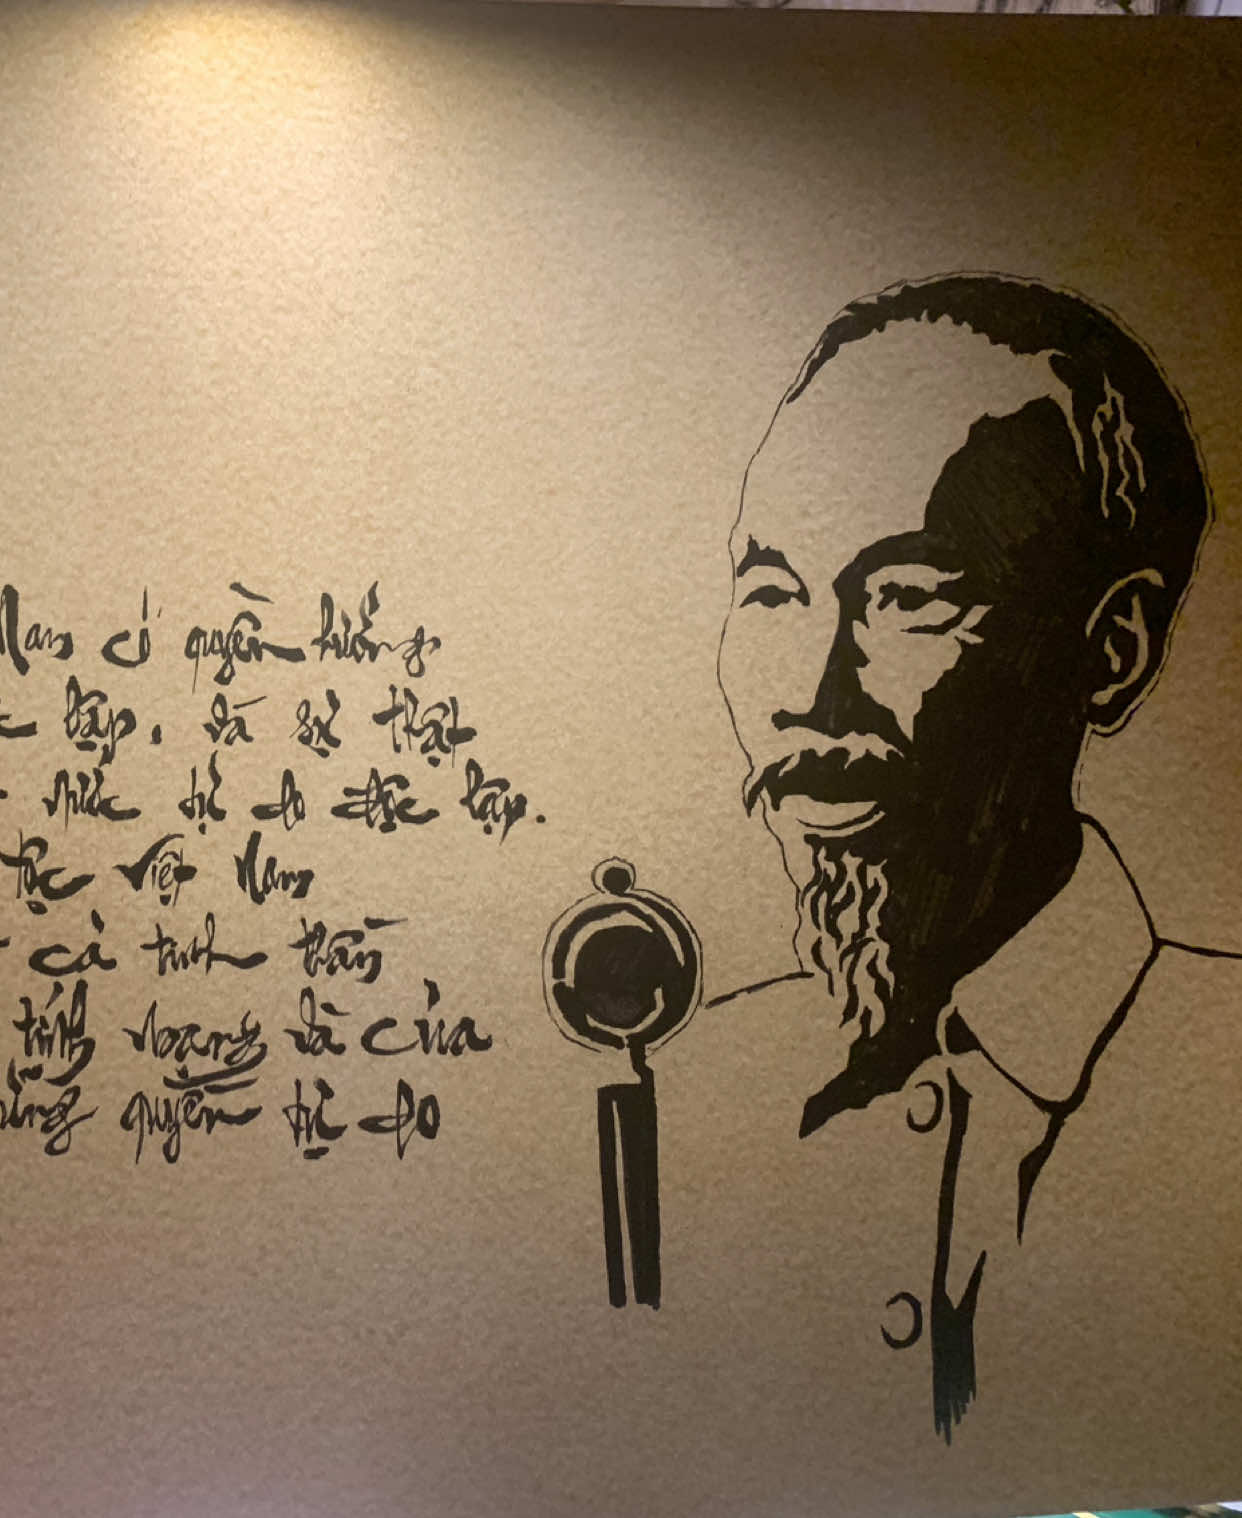 Nam có quyền hưởng
lập, và sự thật
nước tự do độc lập.
tộc Việt Nam
cả tinh thần
tính mạng và của
quyền tự do